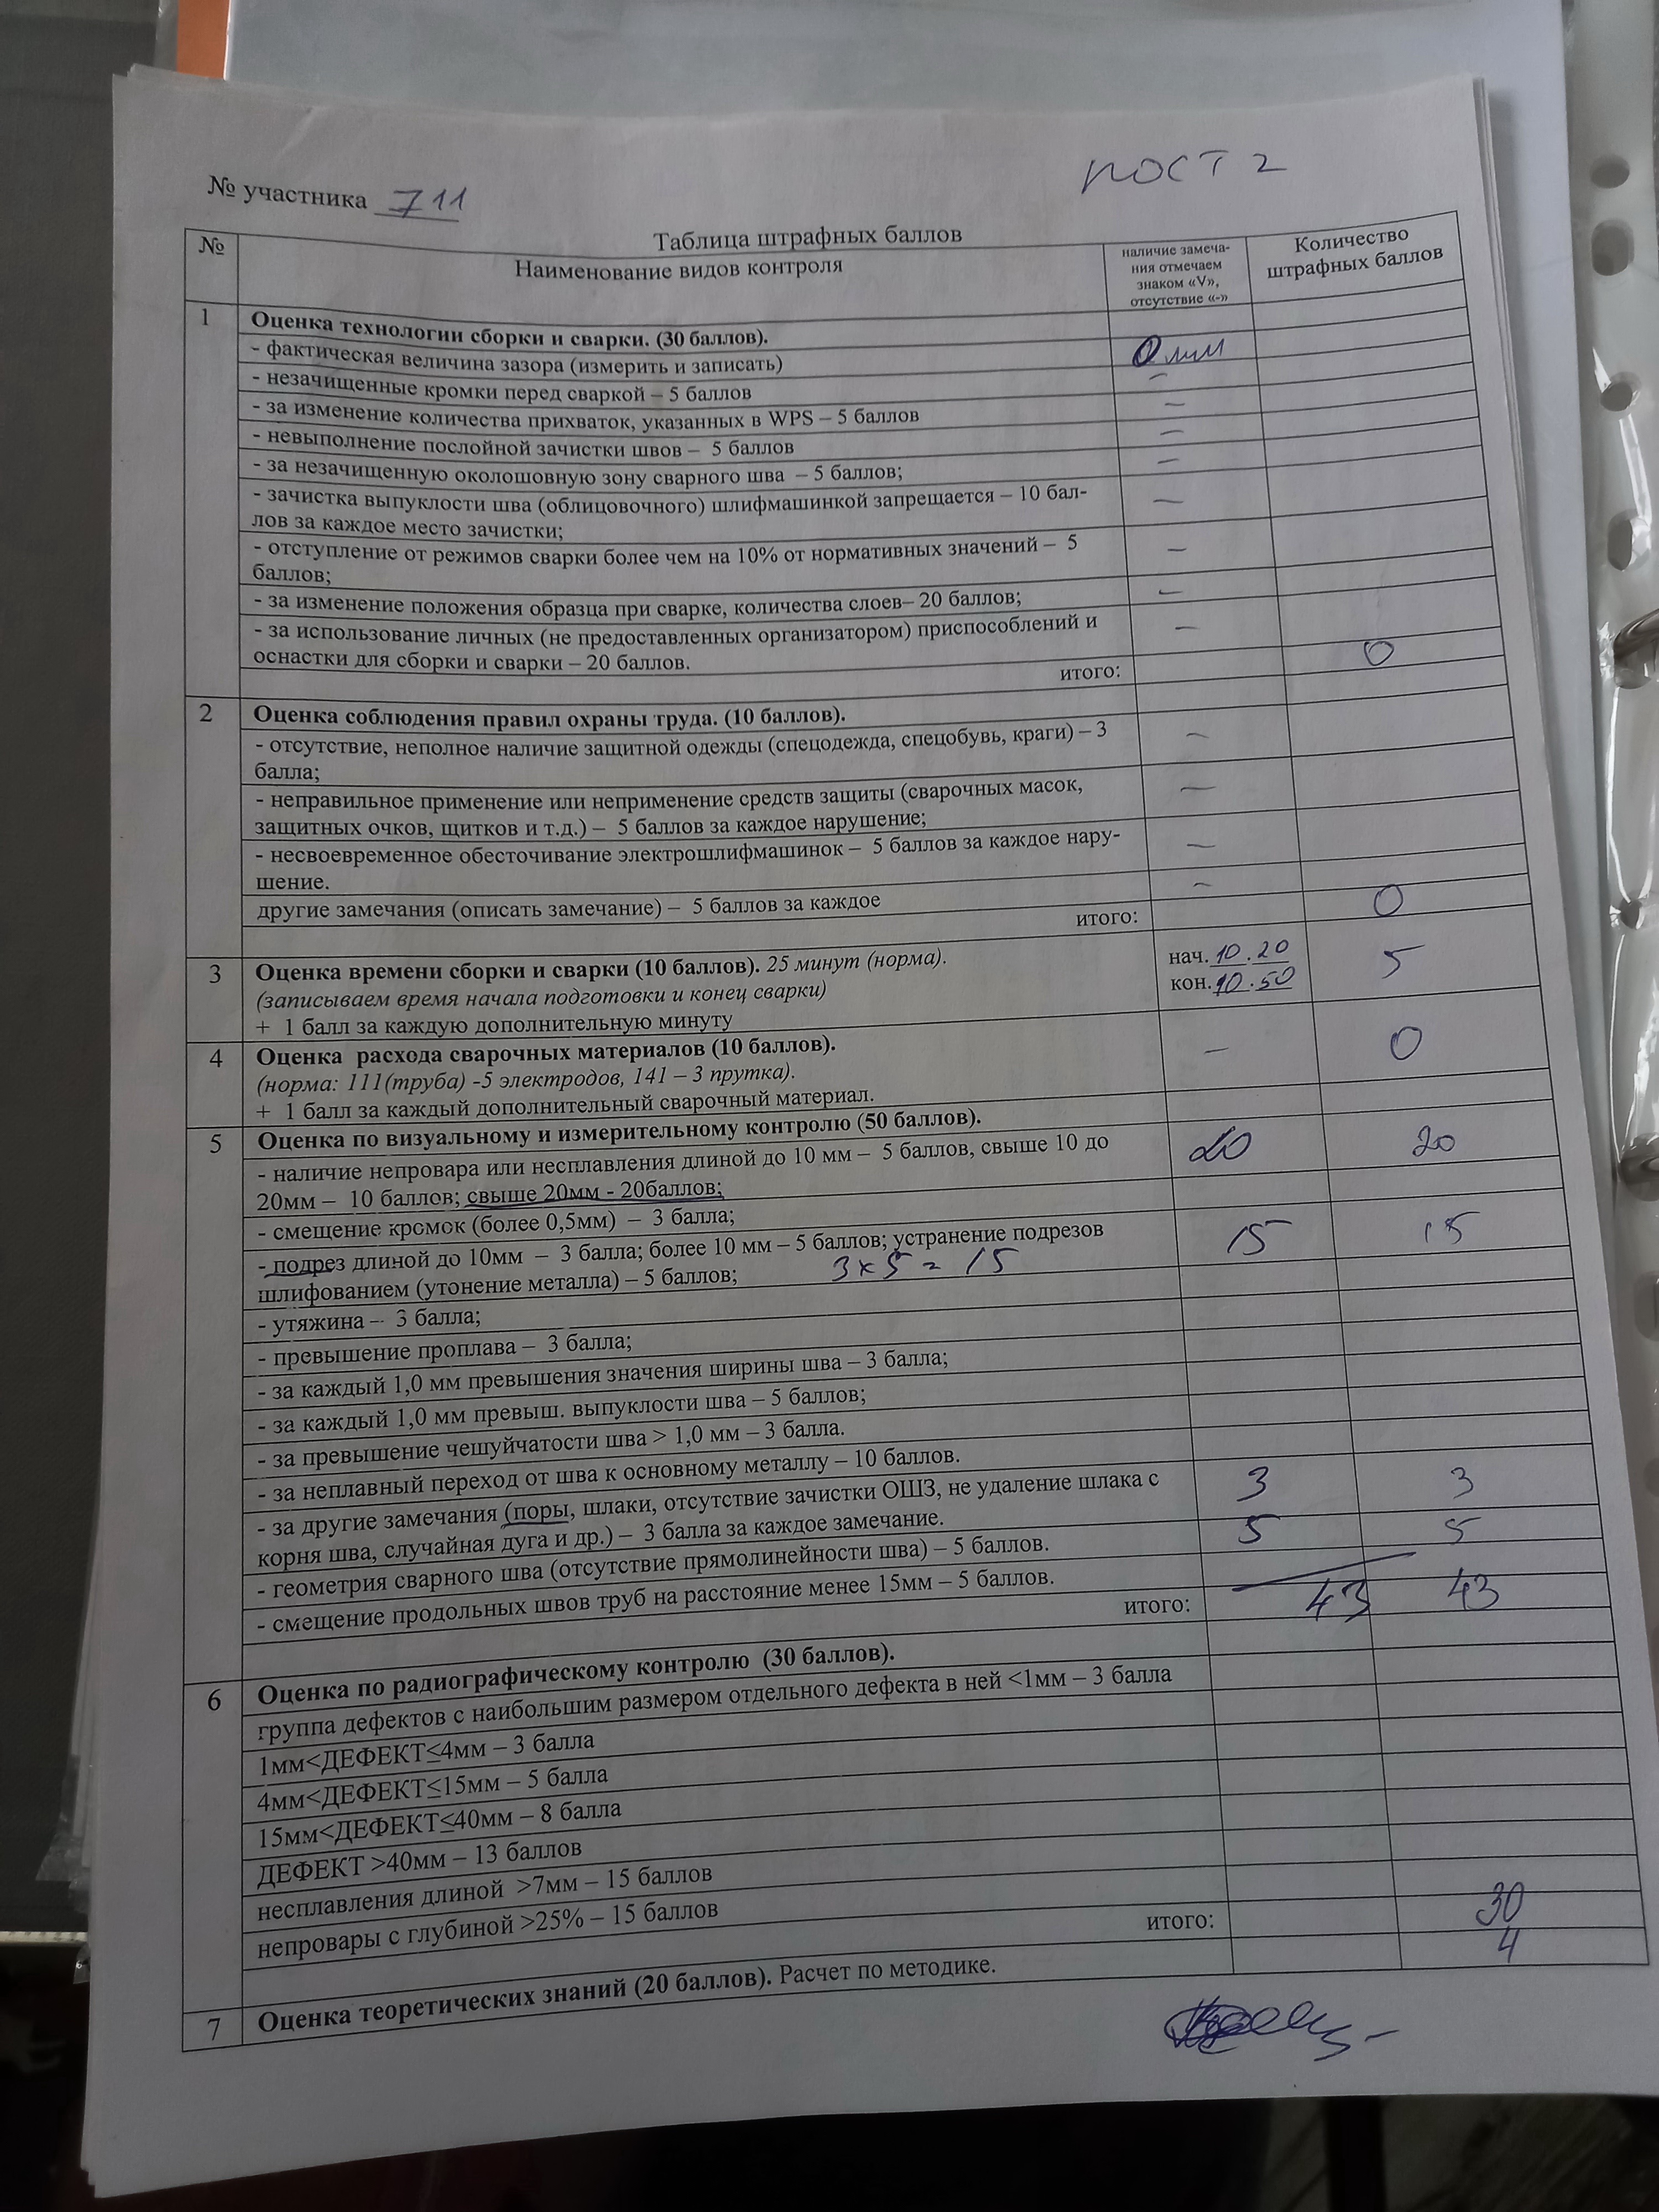 ПОСТ 2
№ участника 711
Таблица штрафных баллов
№
Наименование видов контроля
наличие замеча-
ния отмечаем
знаком «V»,
отсутствие «-»
Количество
штрафных баллов
1
Оценка технологии сборки и сварки. (30 баллов).
- фактическая величина зазора (измерить и записать) 0 мм
- незачищенные кромки перед сваркой – 5 баллов –
- за изменение количества прихваток, указанных в WPS – 5 баллов –
- невыполнение послойной зачистки швов – 5 баллов –
- за незачищенную околошовную зону сварного шва – 5 баллов; –
- зачистка выпуклости шва (облицовочного) шлифмашинкой запрещается – 10 бал- –
лов за каждое место зачистки;
- отступление от режимов сварки более чем на 10% от нормативных значений – 5 –
баллов;
- за изменение положения образца при сварке, количества слоев– 20 баллов; –
- за использование личных (не предоставленных организатором) приспособлений и –
оснастки для сборки и сварки – 20 баллов.
итого: 0
2
Оценка соблюдения правил охраны труда. (10 баллов).
- отсутствие, неполное наличие защитной одежды (спецодежда, спецобувь, краги) – 3 –
балла;
- неправильное применение или неприменение средств защиты (сварочных масок, –
защитных очков, щитков и т.д.) – 5 баллов за каждое нарушение;
- несвоевременное обесточивание электрошлифмашинок – 5 баллов за каждое нару- –
шение.
другие замечания (описать замечание) – 5 баллов за каждое –
итого: 0
3
Оценка времени сборки и сварки (10 баллов). 25 минут (норма). нач. 10.20 5
(записываем время начала подготовки и конец сварки) кон. 10.50
+ 1 балл за каждую дополнительную минуту
4
Оценка расхода сварочных материалов (10 баллов). – 0
(норма: 111(труба) -5 электродов, 141 – 3 прутка).
+ 1 балл за каждый дополнительный сварочный материал.
5
Оценка по визуальному и измерительному контролю (50 баллов).
- наличие непровара или несплавления длиной до 10 мм – 5 баллов, свыше 10 до 20 20
20мм – 10 баллов; свыше 20мм - 20баллов;
- смещение кромок (более 0,5мм) – 3 балла;
- подрез длиной до 10мм – 3 балла; более 10 мм – 5 баллов; устранение подрезов 15 15
шлифованием (утонение металла) – 5 баллов; 3х5 = 15
- утяжина – 3 балла;
- превышение проплава – 3 балла;
- за каждый 1,0 мм превышения значения ширины шва – 3 балла;
- за каждый 1,0 мм превыш. выпуклости шва – 5 баллов;
- за превышение чешуйчатости шва > 1,0 мм – 3 балла.
- за неплавный переход от шва к основному металлу – 10 баллов.
- за другие замечания (поры, шлаки, отсутствие зачистки ОШЗ, не удаление шлака с 3 3
корня шва, случайная дуга и др.) – 3 балла за каждое замечание.
- геометрия сварного шва (отсутствие прямолинейности шва) – 5 баллов. 5 5
- смещение продольных швов труб на расстояние менее 15мм – 5 баллов.
итого: 43 43
6
Оценка по радиографическому контролю (30 баллов).
группа дефектов с наибольшим размером отдельного дефекта в ней <1мм – 3 балла
1мм<ДЕФЕКТ≤4мм – 3 балла
4мм<ДЕФЕКТ≤15мм – 5 балла
15мм<ДЕФЕКТ≤40мм – 8 балла
ДЕФЕКТ >40мм – 13 баллов
несплавления длиной >7мм – 15 баллов
непровары с глубиной >25% – 15 баллов
итого: 30
7
Оценка теоретических знаний (20 баллов). Расчет по методике. 4